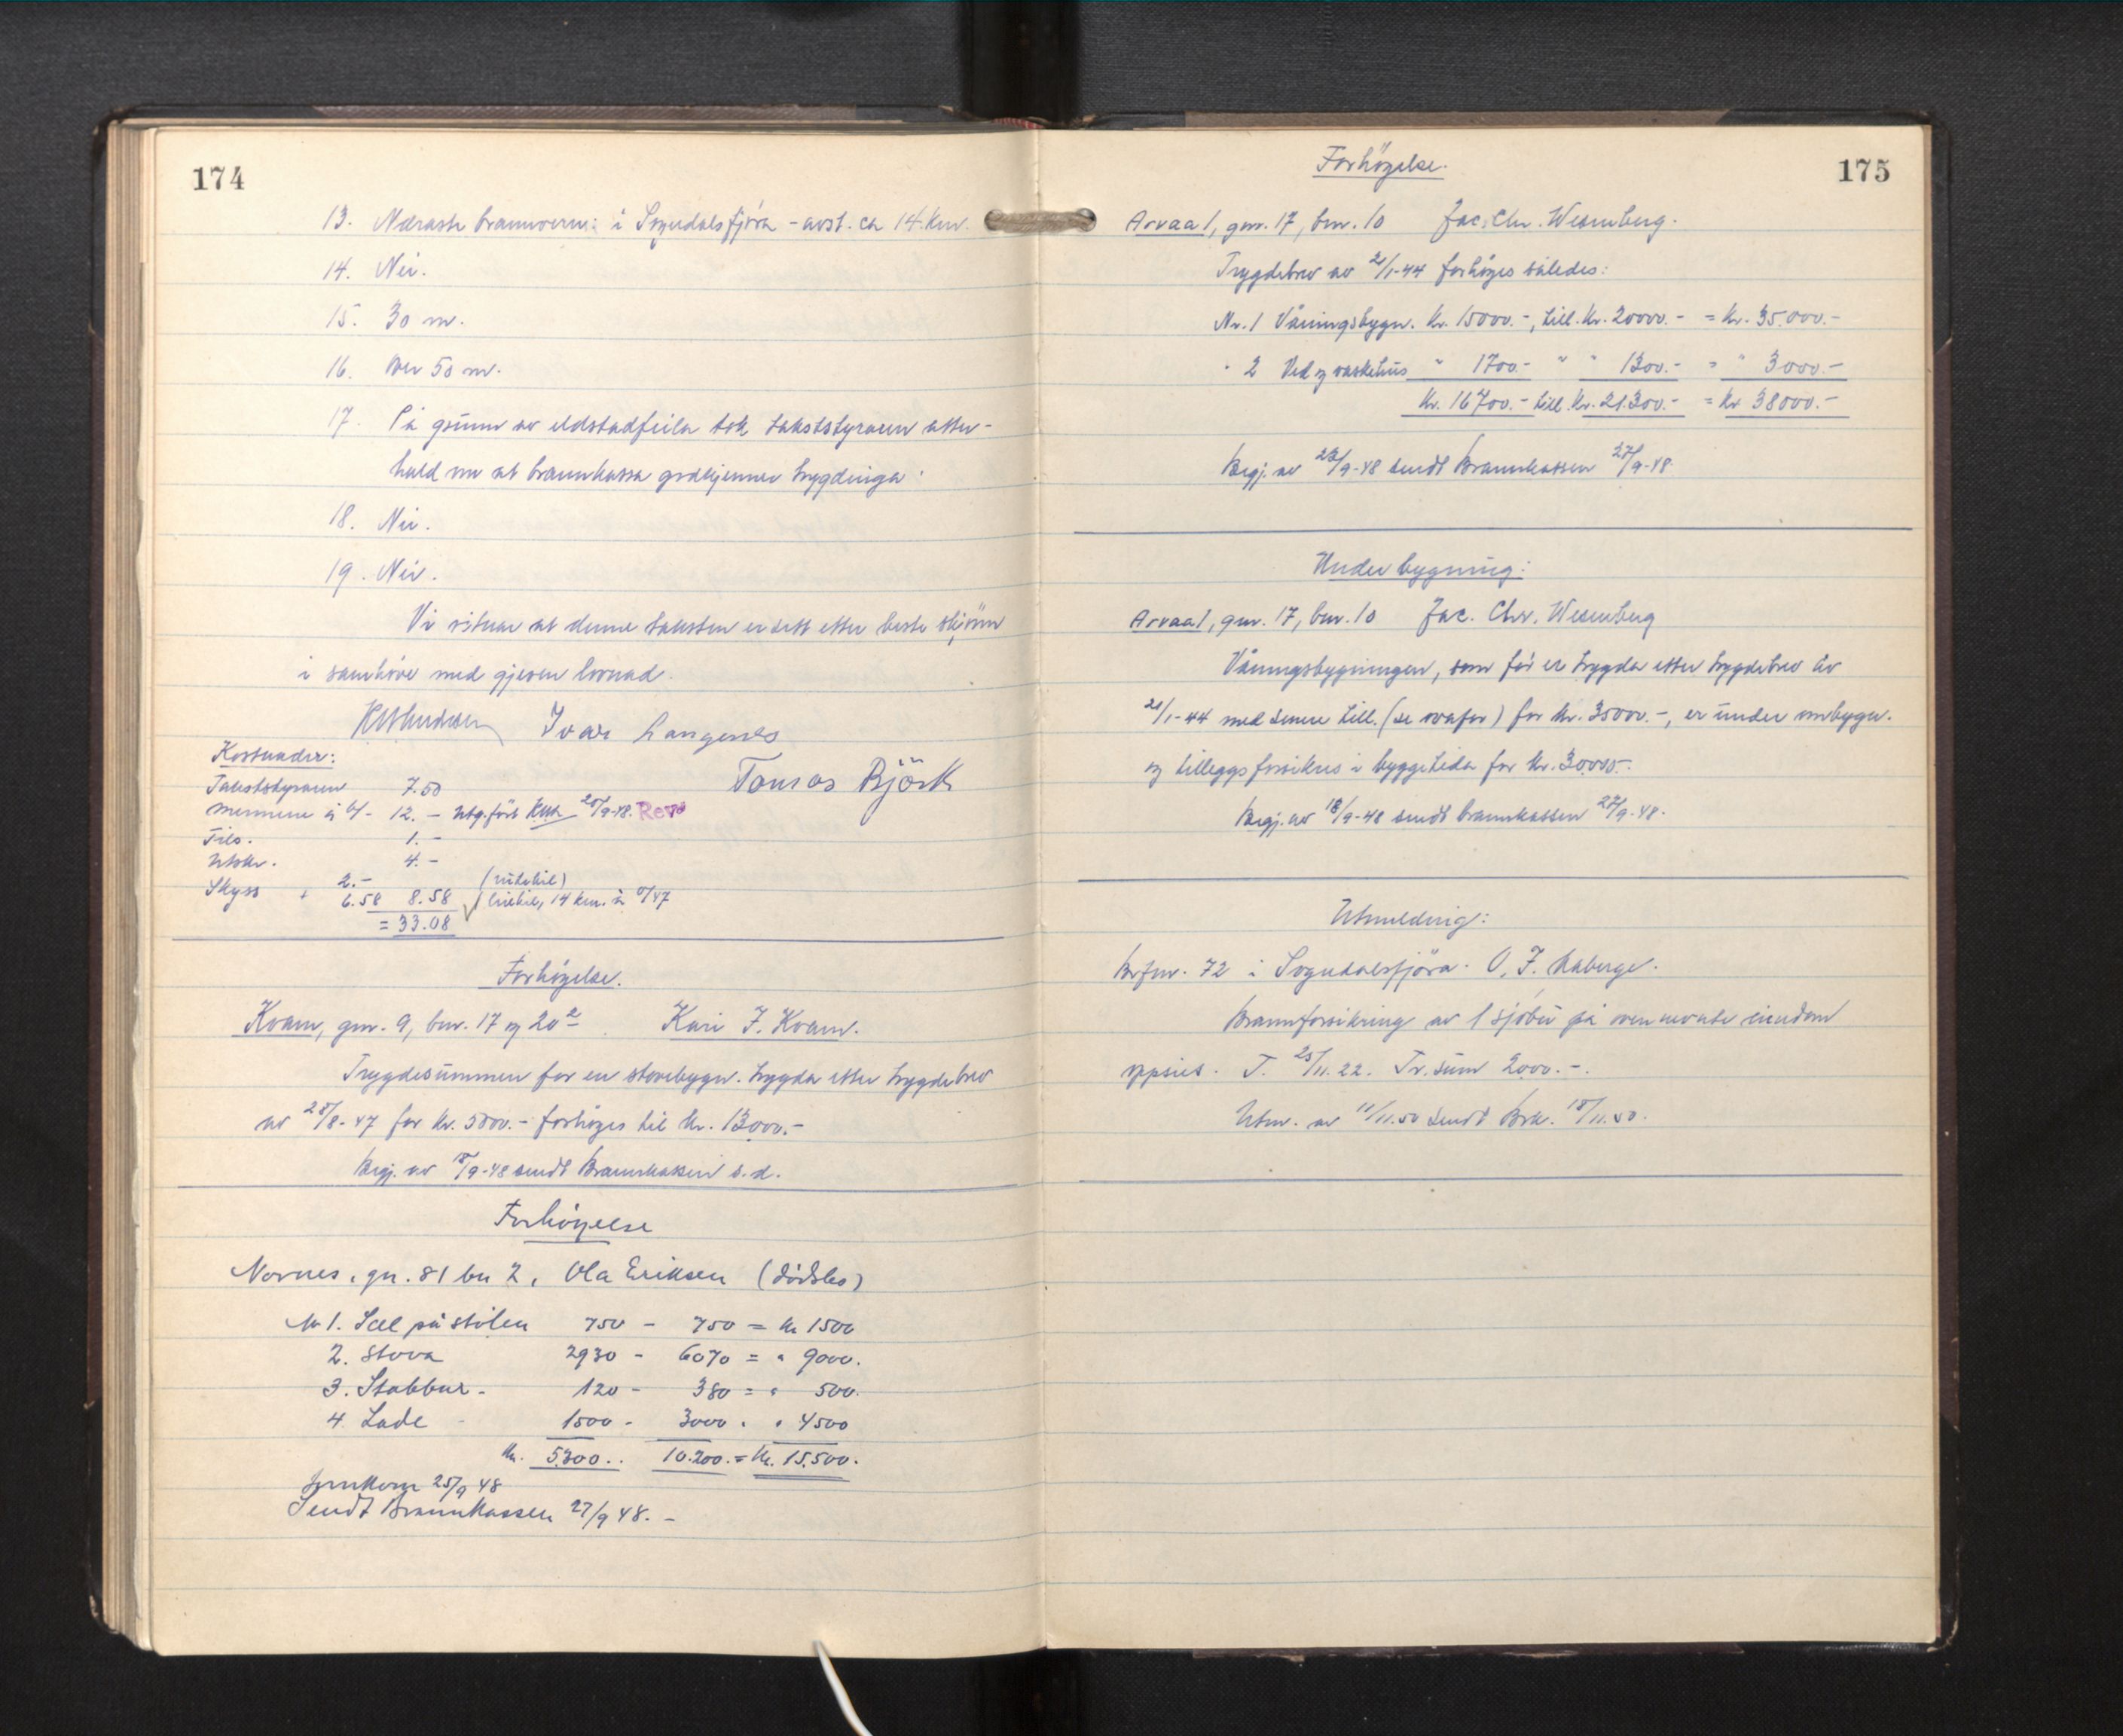 174
13. Næraste brannvern: i Sogndalsfjöra - avst. ca 14 km.
14. Nei.
15. 30 m.
16. Over 50 m.
17. På grunn av eldstadfeila tok takststyraren atter-
hald um at brannkassa godkjenner trygdinga.
18. Nei.
19. Nei.
Vi vitnar at denne taksten er sett etter beste skjönn
i samhöve med gjeven lovnad.
Ivar Langenes
Kostnader:
Tomas Björk
Takststyraren 7.50
Mennene á 6/- 12.- Utg. fört 28/9-48.
Filo. 1.-
Utskr. 4.-
2.- (rutebil)
Skyss + 6.58 8.58 (lillebil, 14 km. à 0/47
= 33.08
Forhögelse.
Kvam, gnr. 9, bnr. 17 og 20² Kari J. Kvam.
Trygdesummen for en stovebygn. trygda etter trygdebrev
av 28/8-47 for kr. 5000.- forhöges til kr. 13000.-
Begj. av 18/9-48 sendt Brannkassen s.d.
Forhöyelse
Nornes, gn. 81 bn 2, Ola Eriksen (dödsbo)
Nr 1. Sel på stölen 750 - 750 = kr 1500
2. Stova 2930 - 6070 = " 9000.
3. Stabbur - 120 - 380 = " 500.
4. Lade - 1500 - 3000 " " 4500
Kr. 5300.. 10.200. = Kr. 15.500.
Innkom 25/9 48
Sendt Brannkassen 27/9 48. -
175
Forhögelse.
Arvaal, gnr. 17, bnr. 10 Jac. Chr. Wesenberg.
Trygdebrev av 21/1-44 forhöges således:
Nr. 1 Våningsbygn. kr. 15000.-, till. kr. 20000.- = kr. 35.000.-
" 2 Ved og vaskehus " 1700.- " " 1300.- = " 3000.-
Kr. 16700.- till. kr. 21.300.- = kr 38000.-
Begj. av 23/9-48 sendt Brannkassen 27/9-48.
Under bygning:
Arvaal, gnr. 17, bnr. 10 Jac. Chr. Wesenberg
Våningsbygningen, som för er trygda etter trygdebrev av
21/1-44 med senere till. (se ovafor) for kr. 35000.-, er under ombygn.
og tilleggsforsikres i byggetida for kr. 30000.-
Begj. av 18/9-48 sendt brannkassen 27/9-48.
Utmelding:
Brfnr. 72 i Sogndalsfjöra. O. J. Aaberge.
Brannforsikring av 1 sjöbu på ovennevnte eiendom
oppsies. T. 25/11.22. Tr.sum 2000.-.
Utm. av 11/11.50 sendt Brk. 18/11.50.